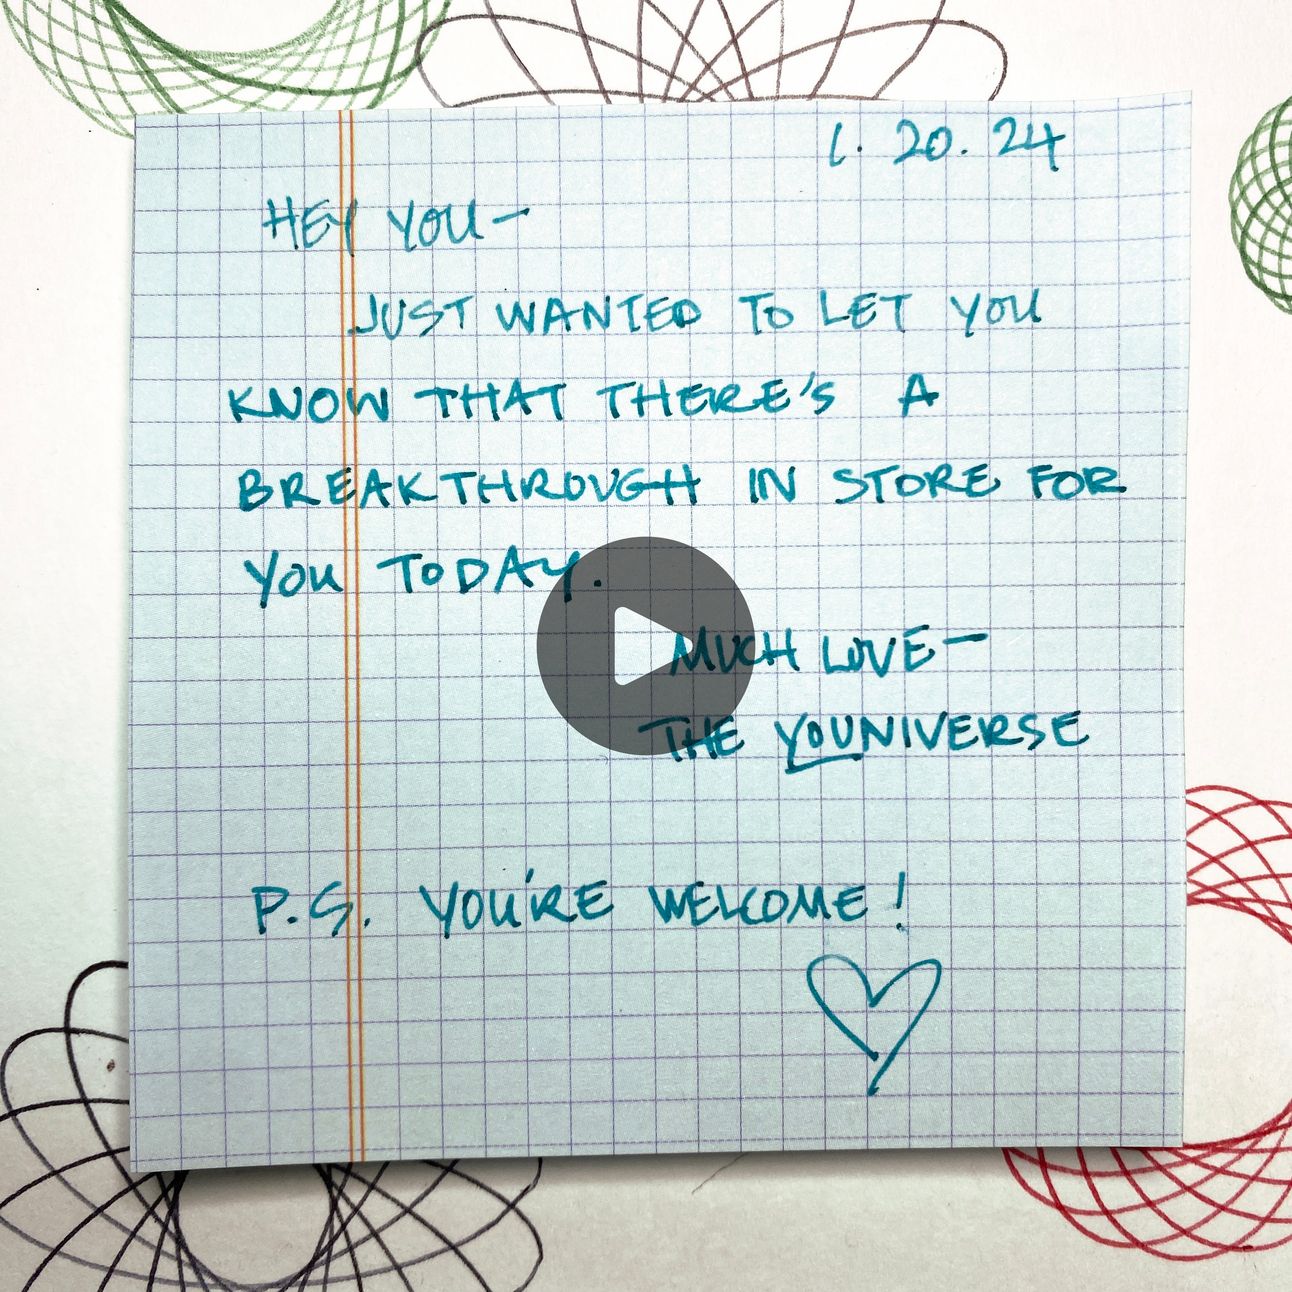 1. 20. 24
HEY YOU—
JUST WANTED TO LET YOU
KNOW THAT THERE'S A
BREAKTHROUGH IN STORE FOR
YOU TODAY.
MUCH LOVE—
THE YOUNIVERSE
P.S. YOU'RE WELCOME!